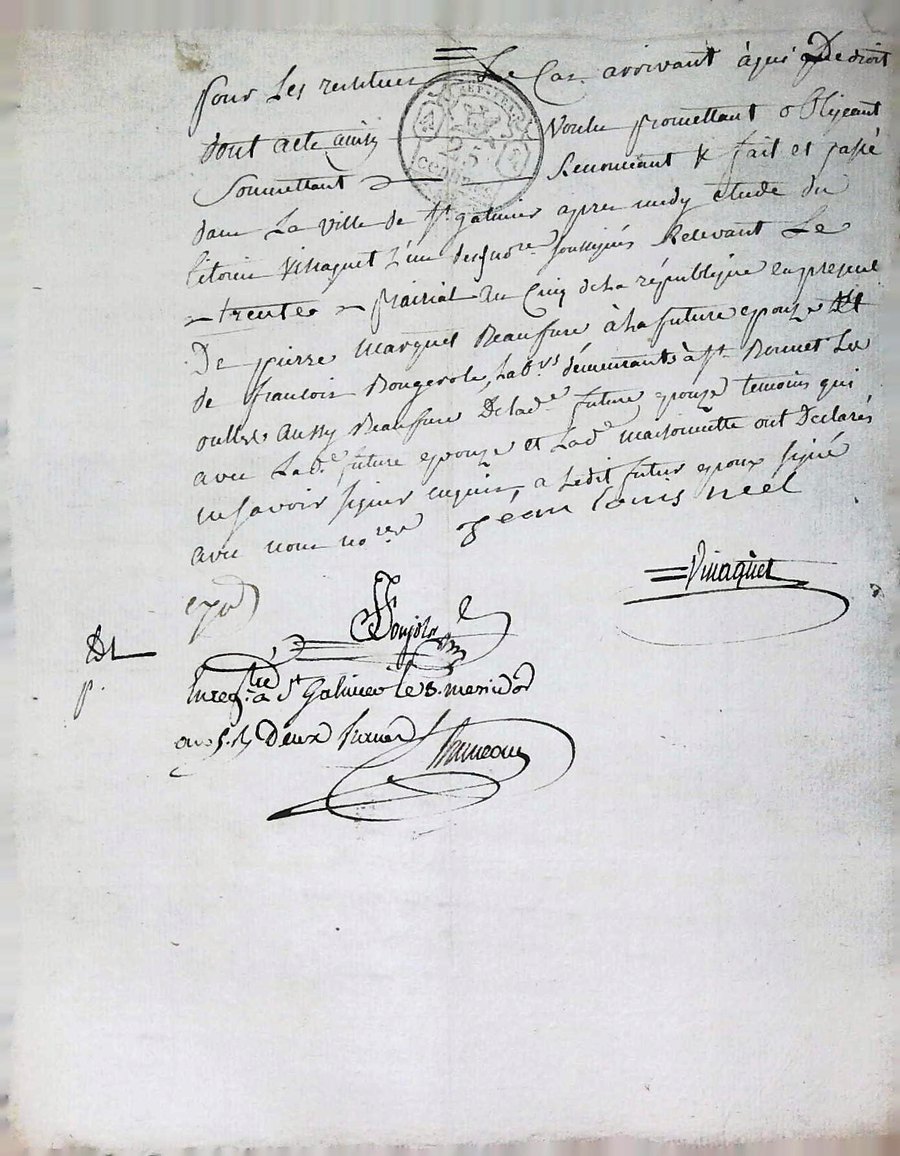 pour Les restituer = Le Cas arrivant à qui De droit
dont acte ainsy Voulu promettant obligeant
Soumettant Renonceant & fait et passé
dans La ville de St galmier apres midy étude du
Citoien Vinaquet L'un des no.re soussignés Relevant Le
trente prairial au Cinq de La république en presence
De pierre Marquet Beaufrere à La future epouze &
de francois Bougerole, Lab.rs demeurants à St Bonnet Les
oulles aussy Beaufrere De lad.e future epouze temoins qui
avec Lad.e future epouze et Lad.e maisonnette ont Declarés
ne savoir signer enquis, a Ledit futur epoux signé
avec nous no.res jean louis neel
= Vinaquet
expd
Dt
p.
Enreg.tré a St Galmier le 8. messidor
an 5. R Deux francs